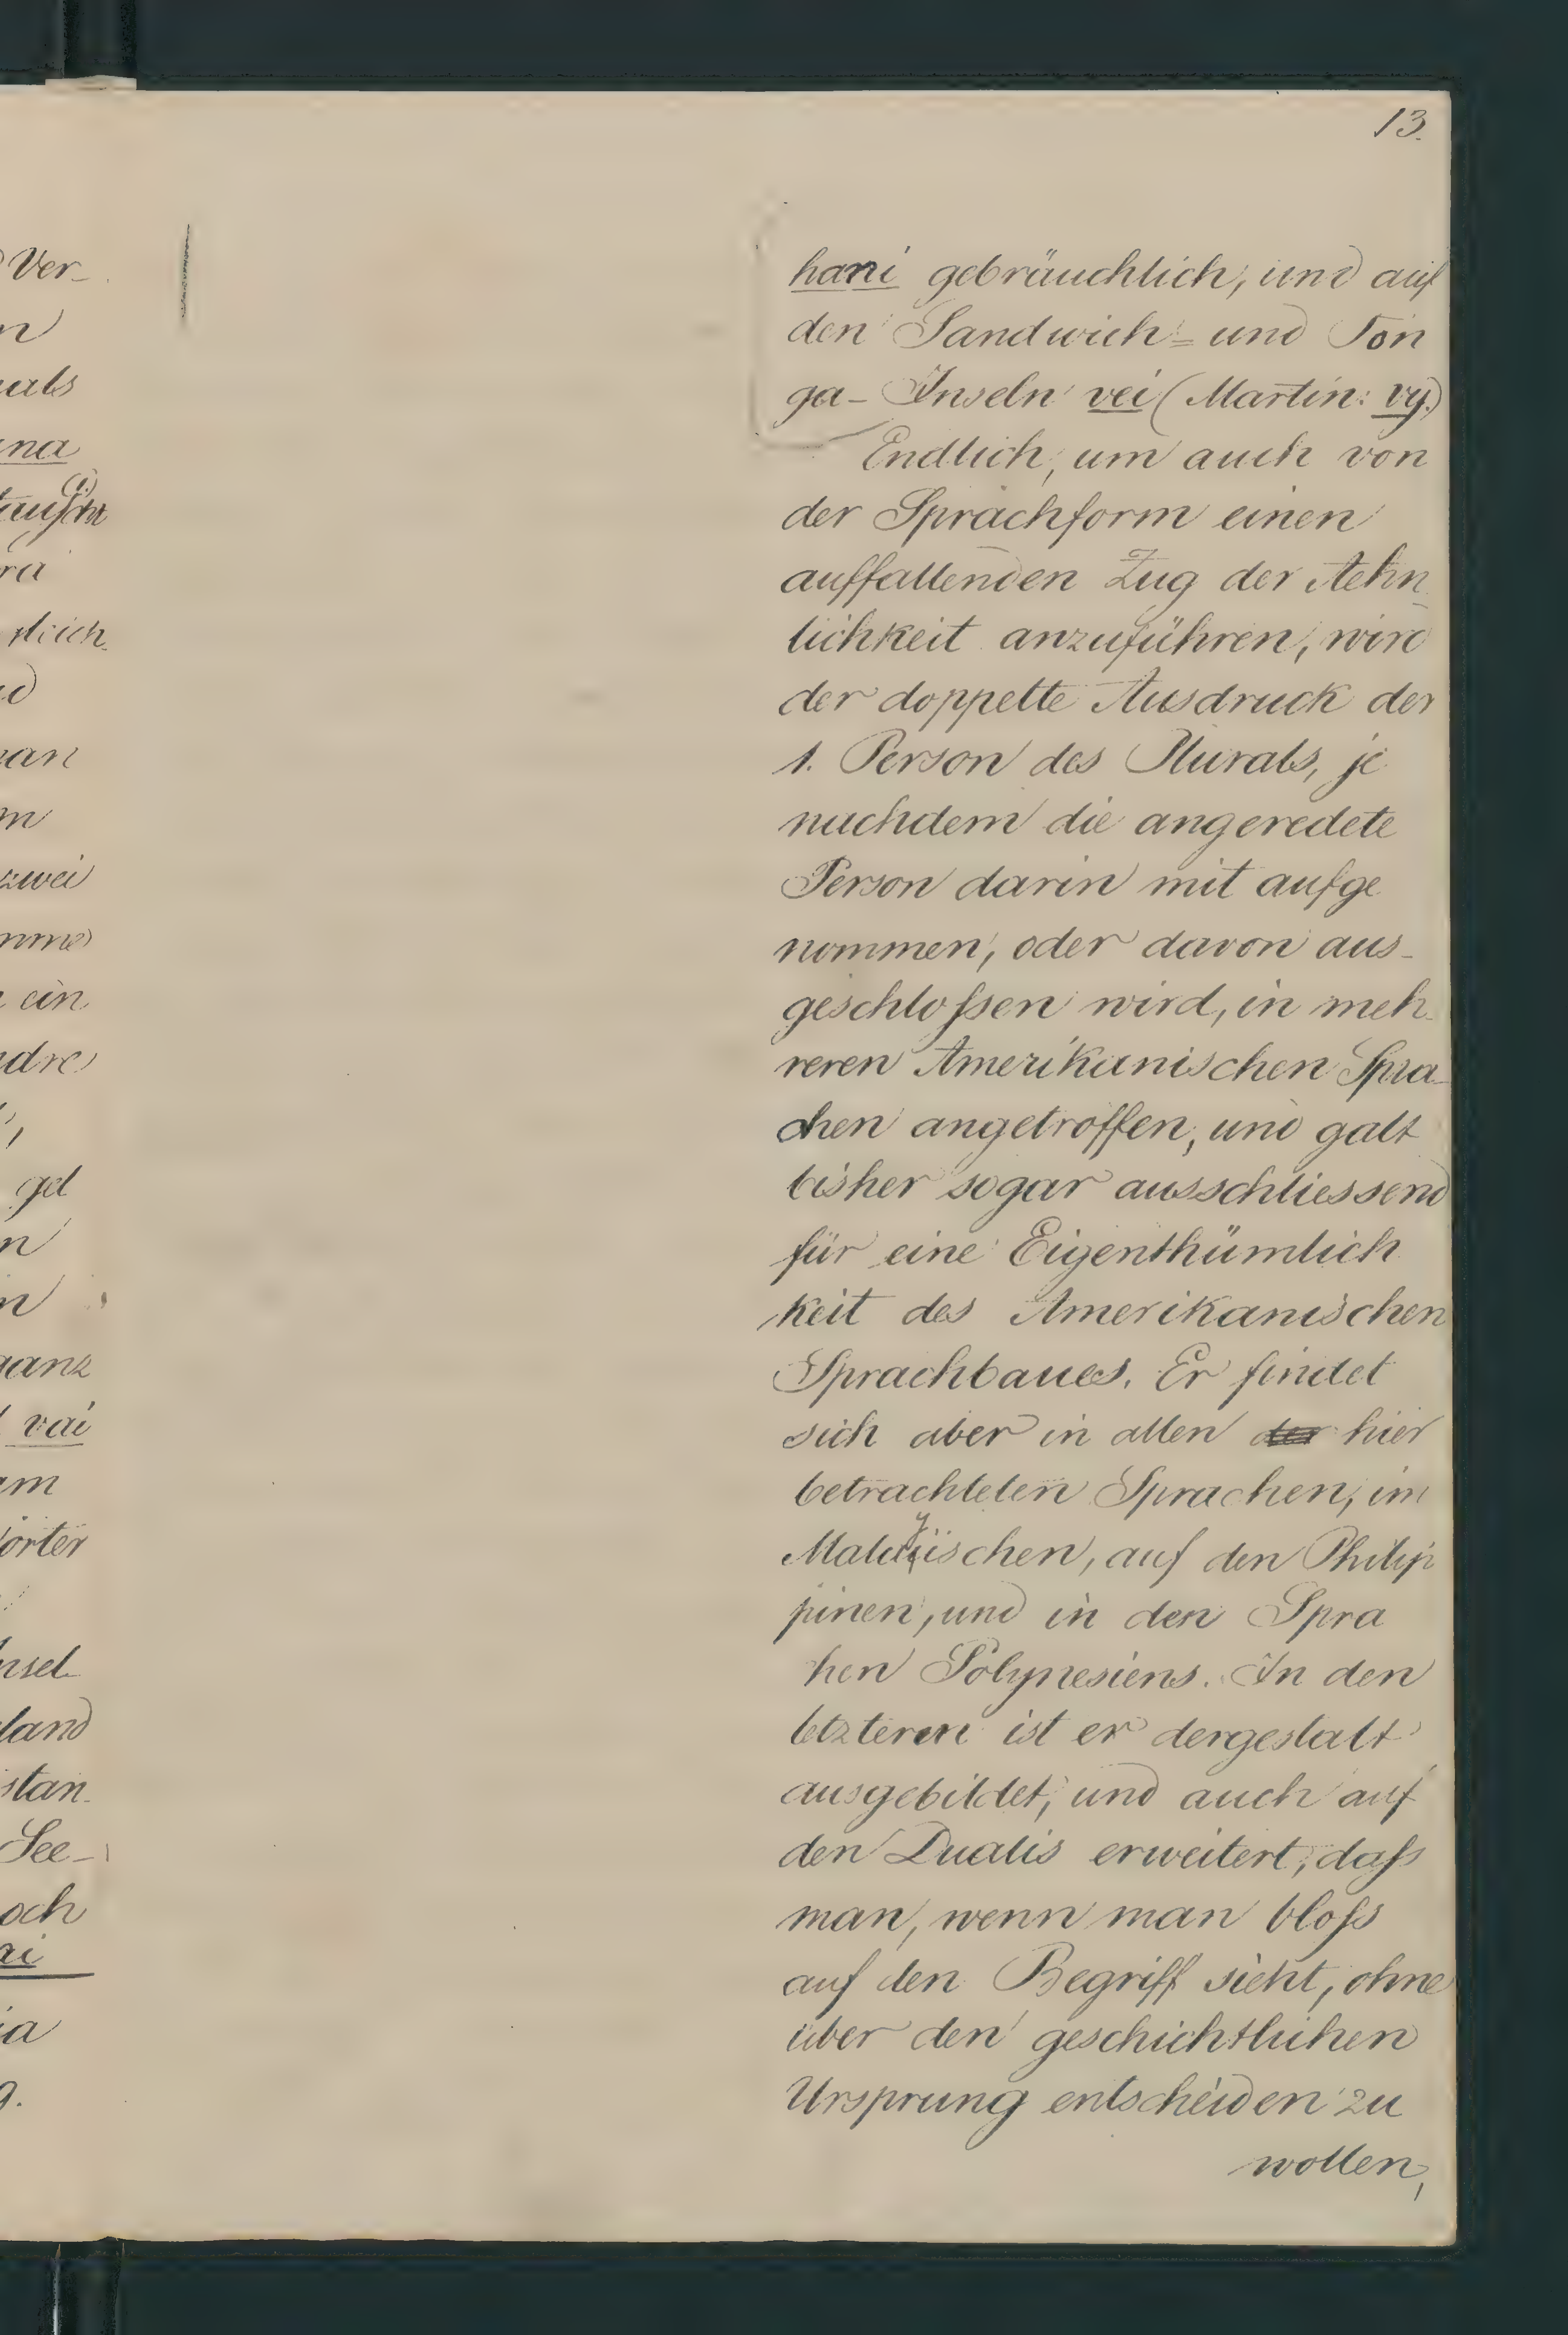 Ver-
n
als
na
(1.)
tauscht
ra
d
an
m
zwei
ein
ndre
gel
n
n
ganz
vai
am
örter
nsel
land
stan-
See-
och
ai
ia
9.
13.
hani gebräuchlich, und auf
den Sandwich= und Ton
ga- Inseln vei (Martin: vy.)
Endlich, um auch von
der Sprachform einen
auffallenden Zug der Aehn
lichkeit anzuführen, wird
der doppelte Ausdruck der
1. Person des Plurals, je
nachdem die angeredete
Person darin mit aufge
nommen, oder davon aus-
geschloſsen wird, in meh-
reren Amerikanischen Spra-
chen angetroffen, und galt
bisher sogar ausschliessend
für eine Eigenthümlich
keit des Amerikanischen
Sprachbaues. Er findet
sich aber in allen der hier
betrachteten Sprachen, im
Malayischen, auf den Philip
pinen, und in den Spra
hen Polynesiens. In den
letzteren ist er dergestalt
ausgebildet, und auch auf
den Dualis erweitert, daſs
man, wenn man bloſs
auf den Begriff sieht, ohne
über den geschichtlichen
Ursprung entscheiden zu
wollen,